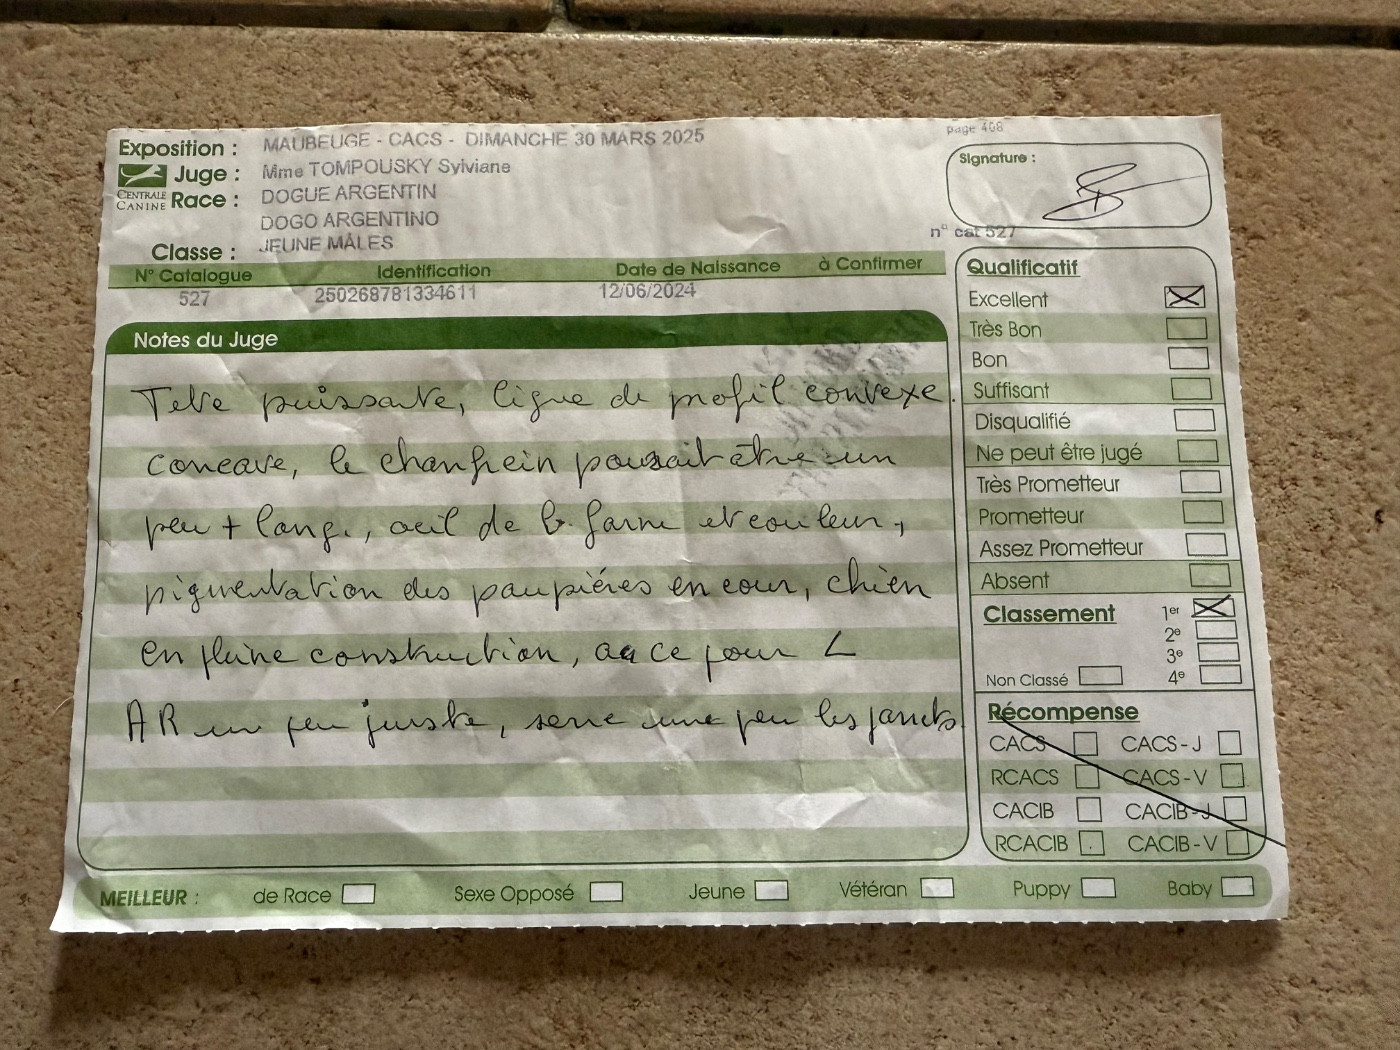 page 408
Exposition : MAUBEUGE - CACS - DIMANCHE 30 MARS 2025
Juge : Mme TOMPOUSKY Sylviane
CENTRALE CANINE
Race : DOGUE ARGENTIN
DOGO ARGENTINO
Classe : JEUNE MÂLES
Signature :
n° cat 527
N° Catalogue Identification Date de Naissance à Confirmer
527 250268781334611 12/06/2024
Notes du Juge
Tete puissante, ligne de profil convexe
concave, le chanfrein pourrait être un
peu + long., oeil de b. forme et couleur,
pigmentation des paupiéres en cour, chien
en pleine construction, ce pour L
AR un peu juste, serre une peu les jarrets
Qualificatif
Excellent
Très Bon
Bon
Suffisant
Disqualifié
Ne peut être jugé
Très Prometteur
Prometteur
Assez Prometteur
Absent
Classement 1er
2e
3e
Non Classé 4e
Récompense
CACS CACS-J
RCACS CACS-V
CACIB CACIB-J
RCACIB CACIB-V
MEILLEUR : de Race Sexe Opposé Jeune Vétéran Puppy Baby